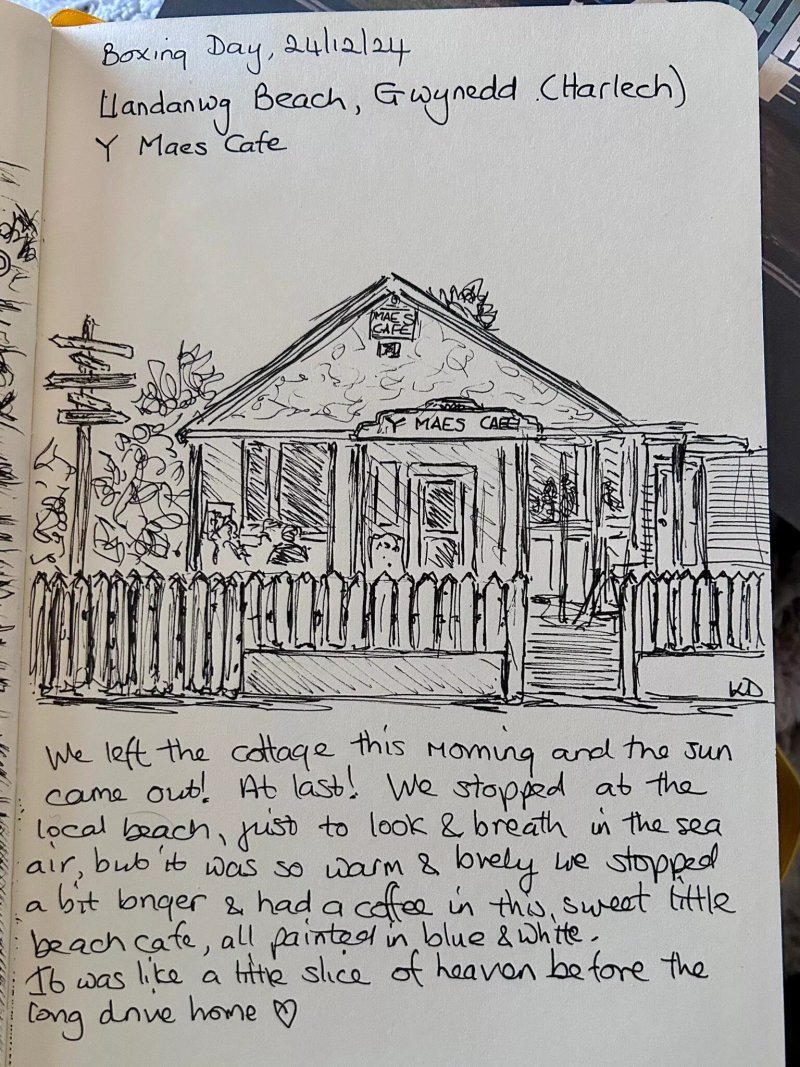 Boxing Day, 24/12/24
Llandanwg Beach, Gwynedd (Harlech)
Y Maes Cafe
MAES
CAFE
Y MAES CAFE
KD
We left the cottage this morning and the sun
came out! At last! We stopped at the
local beach, just to look & breath in the sea
air, but it was so warm & lovely we stopped
a bit longer & had a coffee in this, sweet little
beach cafe, all painted in blue & white.
It was like a little slice of heaven before the
long drive home ♡